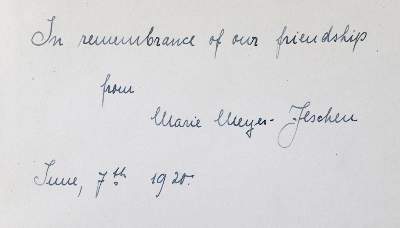 In remembrance of our friendship
from
Marie Meyer-Jeschen
June, 7th 1920.